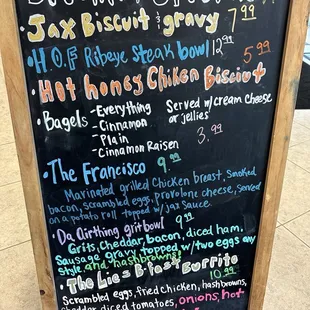 ·Jax Biscuit & gravy 7.99
·H.O.F Ribeye Steak bowl 12.99
·Hot honey Chiken Biscuit 5.99
·Bagels -Everything Served w/cream cheese
-Cinnamon or jellies
-Plain 3.99
-Cinnamon Raisen
·The Francisco 9.99
Marinated grilled Chicken breast, Smoked
bacon, scrambled eggs, provolone cheese, Served
on a potato roll topped w/ Jax Sauce.
·Da Dirthing grit bowl 9.99
Grits, Cheddar, bacon, diced ham.
Sausage gravy topped w/ two eggs any
Style and hashbrowns!
·The Lic's B'fast Burrito 10.99
Scrambled eggs, fried chicken, hashbrowns,
cheddar, diced tomatoes, onions, hot